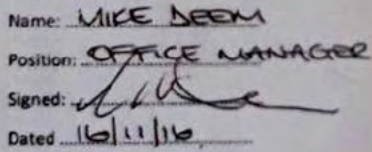 Name: MIKE DEEM
Position: OFFICE MANAGER
Signed:
Dated 16/11/16